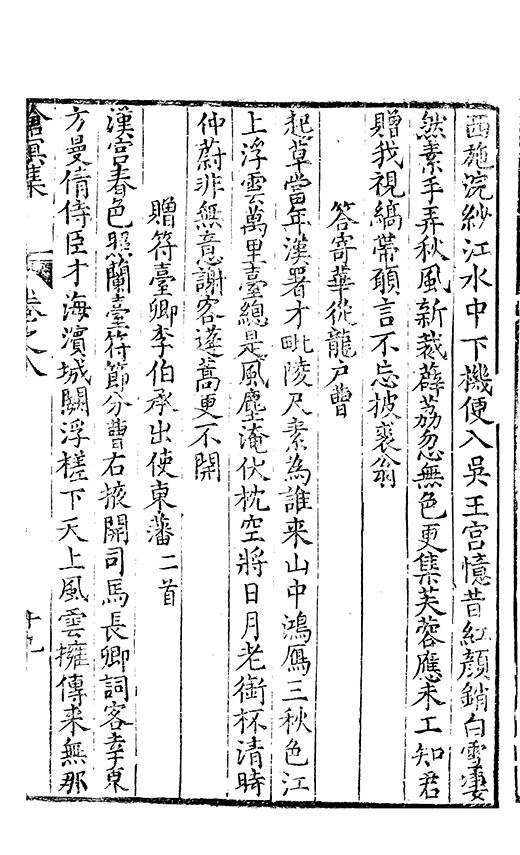 西施浣紗江水中下機便入吳王宮憶昔紅顏銷白雪凄
然素手弄秋風新裁薜荔忽無色更集芙蓉應未工知君
贈我視縞帶願言不忘披裘翁
答寄華從龍戶曹
起草當年漢署才毗陵尺素為誰来山中鴻鴈三秋色江
上浮雲萬里臺總是風塵淹伏枕空將日月老銜杯清時
仲蔚非無意謝客蓬蒿更不開
贈符臺卿李伯承出使東藩二首
漢宮春色照蘭臺符節分曹右掖開司馬長卿詞客幸東
方曼倩侍臣才海濱城闕浮槎下天上風雲擁傳来無那
滄溟集
卷之八
十九